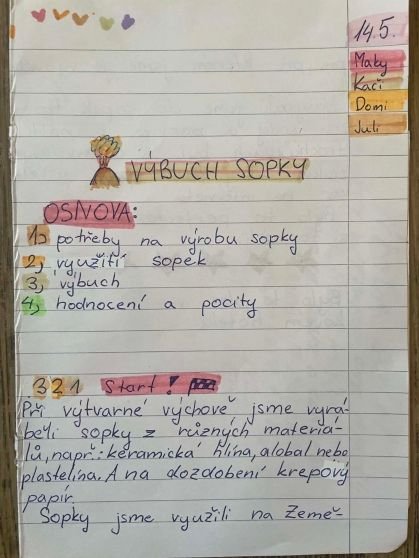 14.5.
Maky
Kačí
Domi
Juli
VÝBUCH SOPKY
OSNOVA:
1, potřeby na výrobu sopky
2, využití sopek
3, výbuch
4, hodnocení a pocity
3 2 1 Start!
Při výtvarné výchově jsme vyrá-
běli sopky z různých materiá-
lů, např.: keramická hlína, alobal nebo
plastelína. A na dozdobení krepový
papír.
Sopky jsme využili na Země-